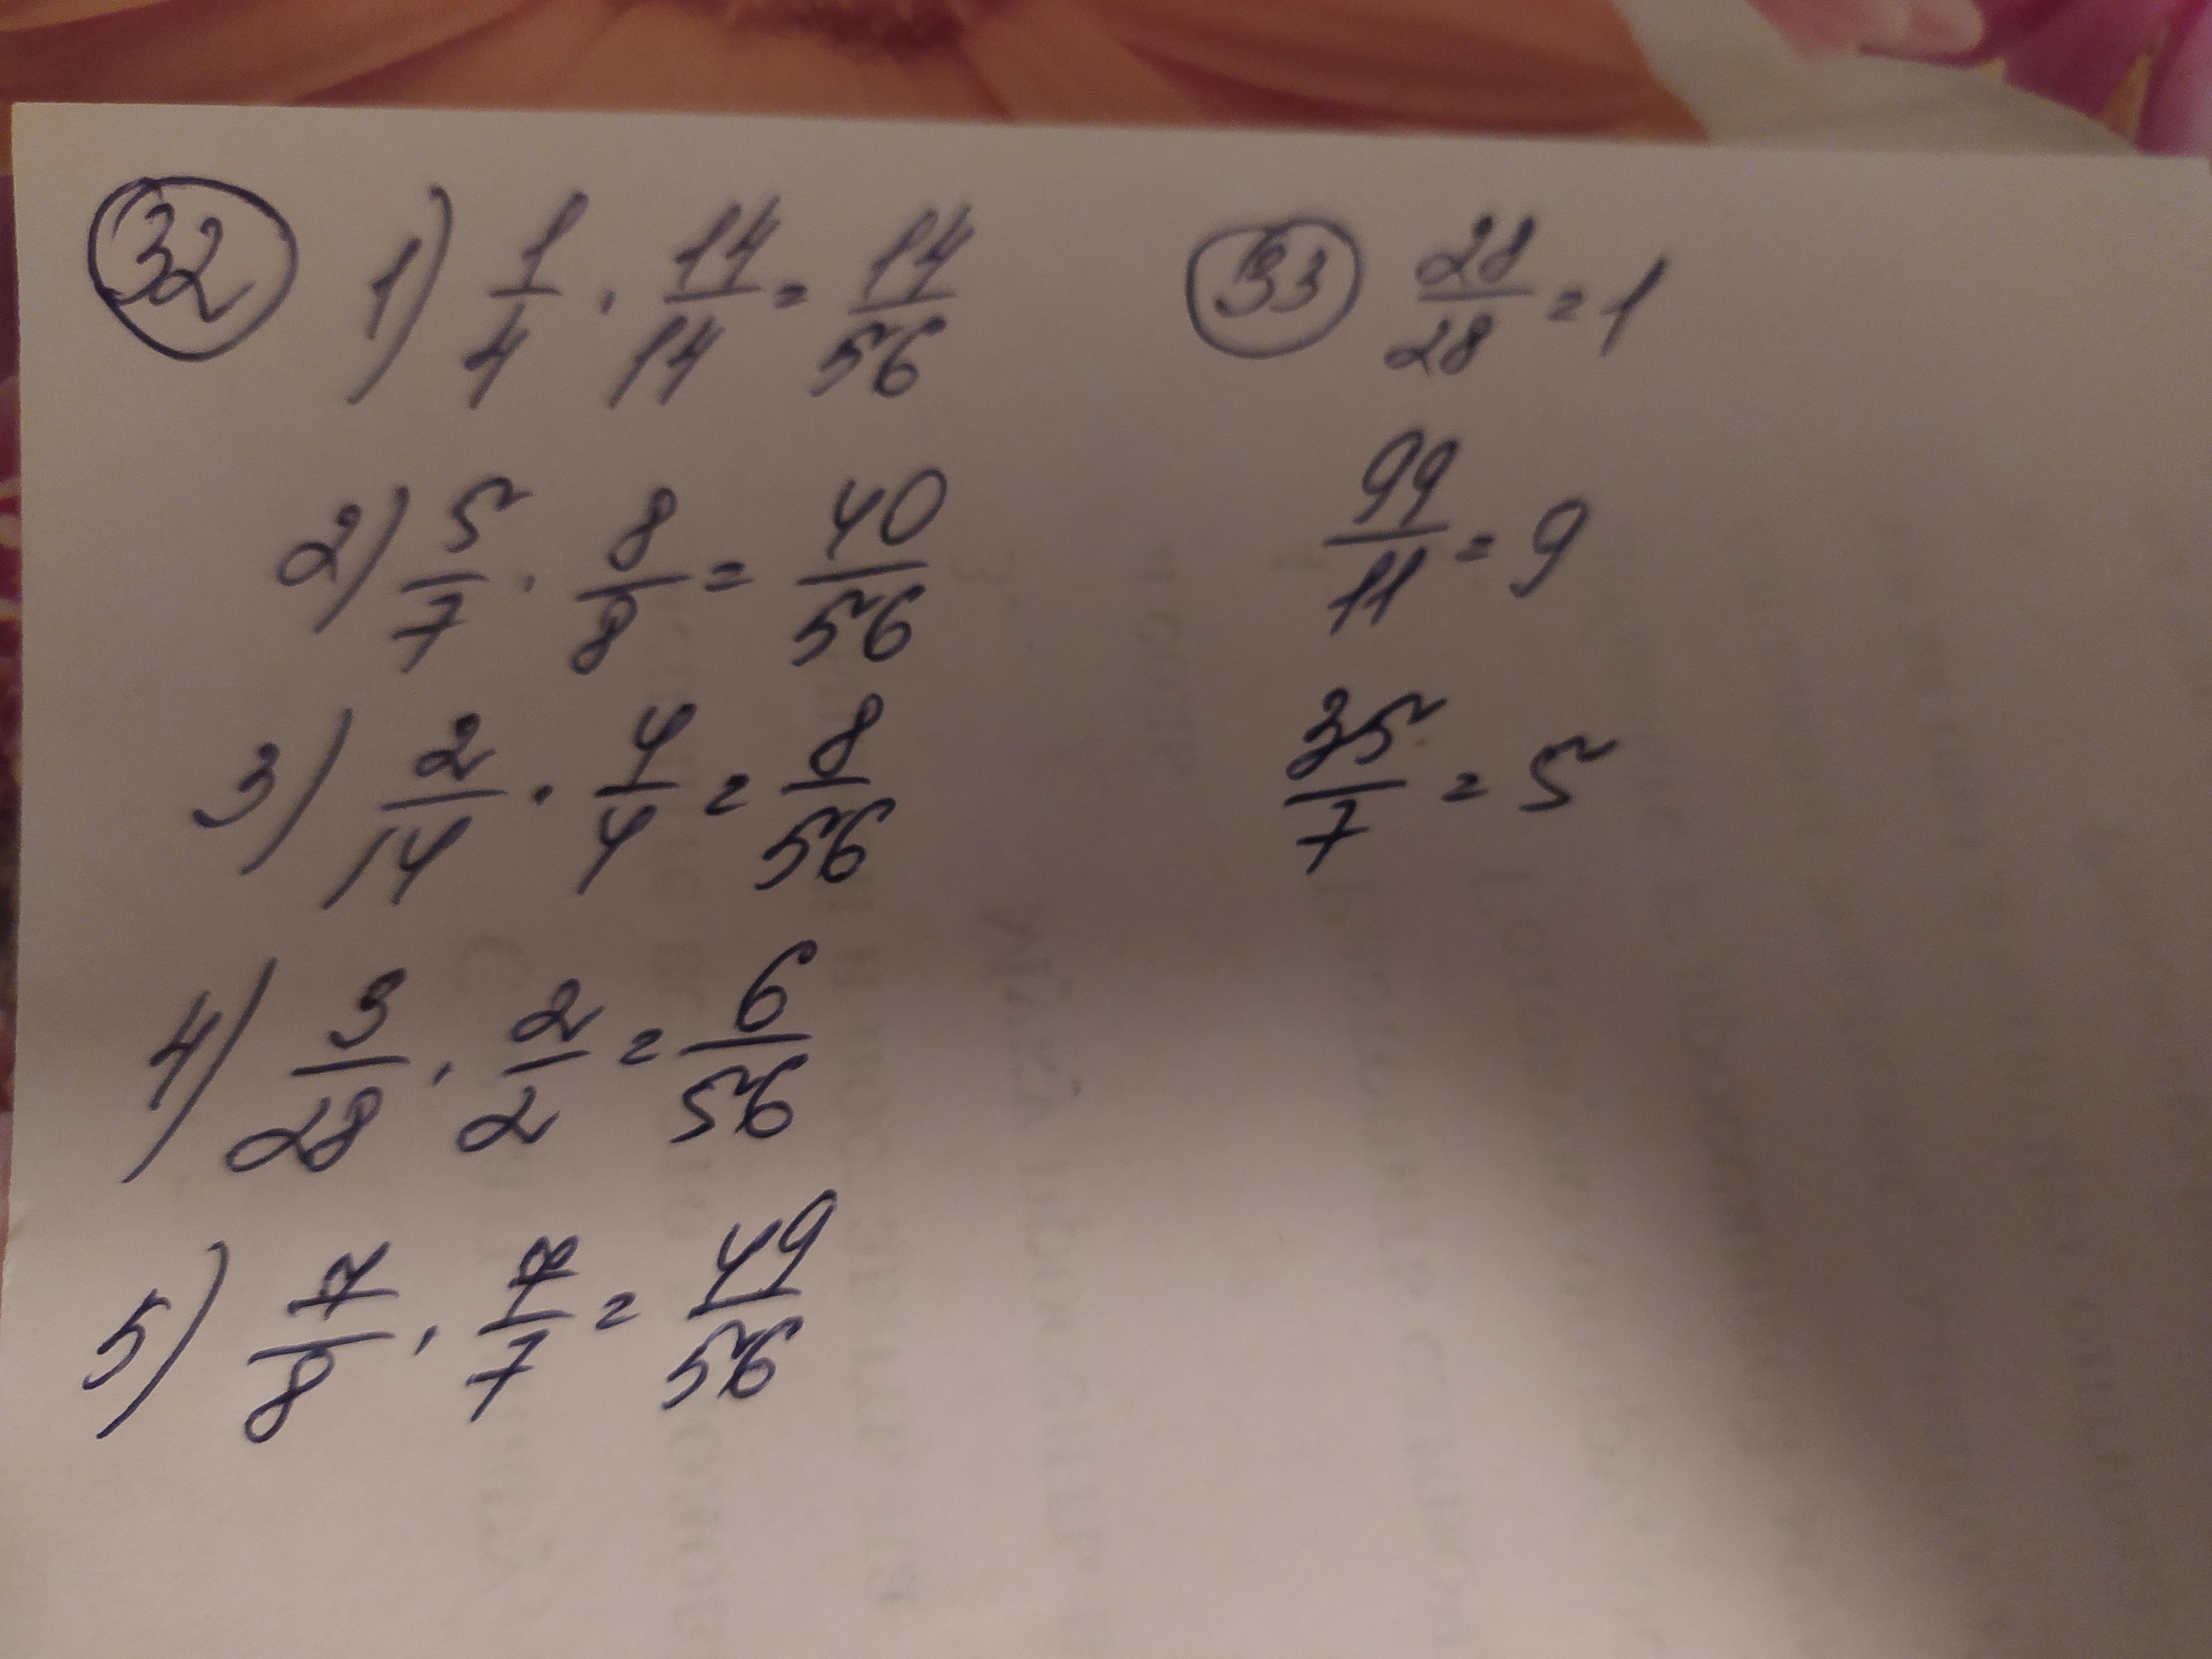 32 1) 1/4 · 14/14 = 14/56
2) 5/7 · 8/8 = 40/56
3) 2/14 · 4/4 = 8/56
4) 3/28 · 2/2 = 6/56
5) 7/8 · 7/7 = 49/56
33 28/28 = 1
99/11 = 9
35/7 = 5